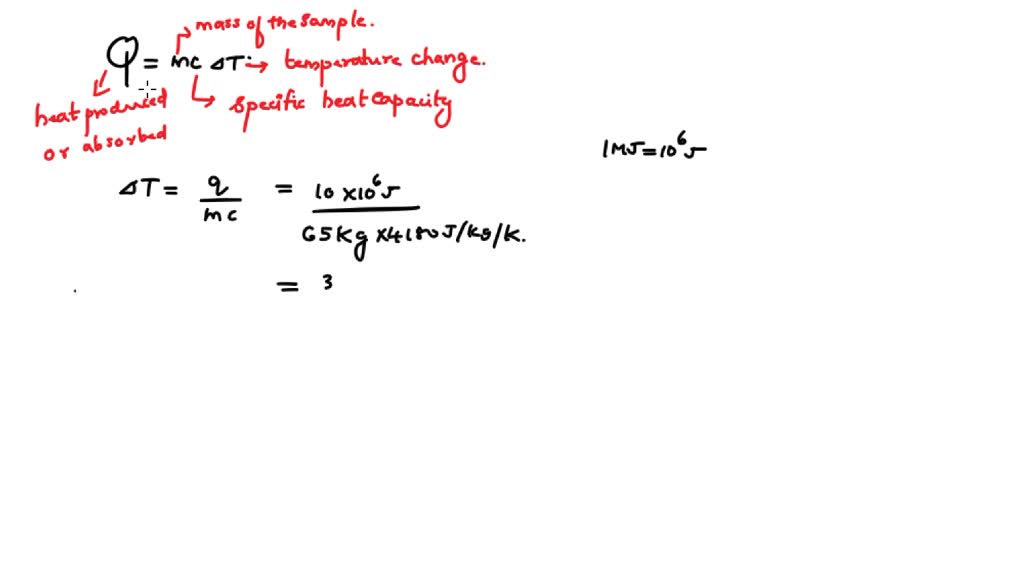 mass of the sample.
q = mc ΔT → temperature change.
heat produced
or absorbed
specific heat capacity
1 MJ = 10⁶ J
ΔT = q/mc = 10 x 10⁶ J / 65 kg x 4180 J/kg/K.
= 3